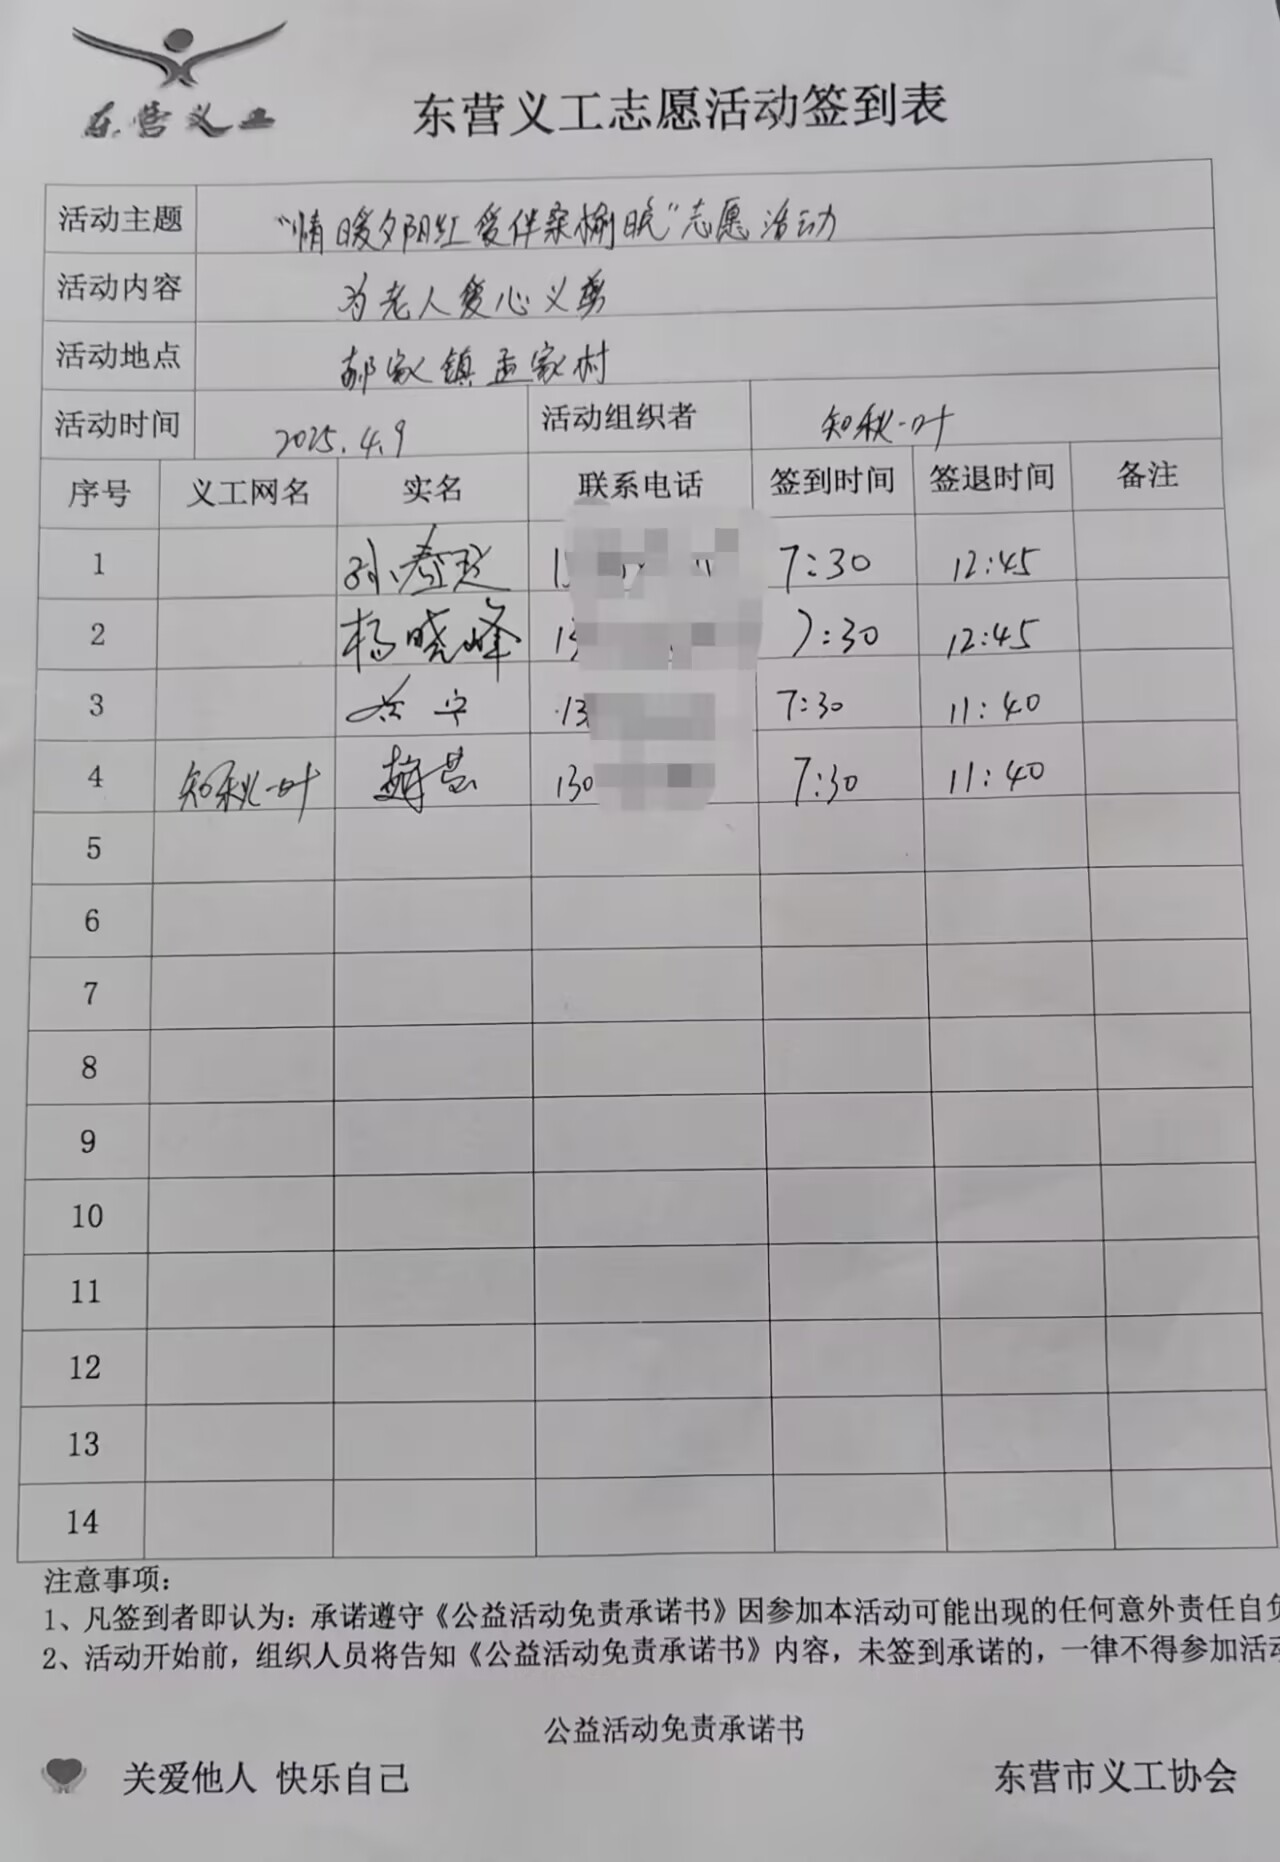 东营义工
东营义工志愿活动签到表
活动主题 “情暖夕阳红 爱伴桑榆晚”志愿活动
活动内容 为老人爱心义剪
活动地点 郝家镇孟家村
活动时间 2025.4.9 活动组织者 知秋一叶
序号 义工网名 实名 联系电话 签到时间 签退时间 备注
1 孙 7:30 12:45
2 杨晓峰 7:30 12:45
3 7:30 11:40
4 知秋一叶 130 7:30 11:40
5
6
7
8
9
10
11
12
13
14
注意事项：
1、凡签到者即认为：承诺遵守《公益活动免责承诺书》因参加本活动可能出现的任何意外责任自负
2、活动开始前，组织人员将告知《公益活动免责承诺书》内容，未签到承诺的，一律不得参加活动
公益活动免责承诺书
关爱他人 快乐自己 东营市义工协会